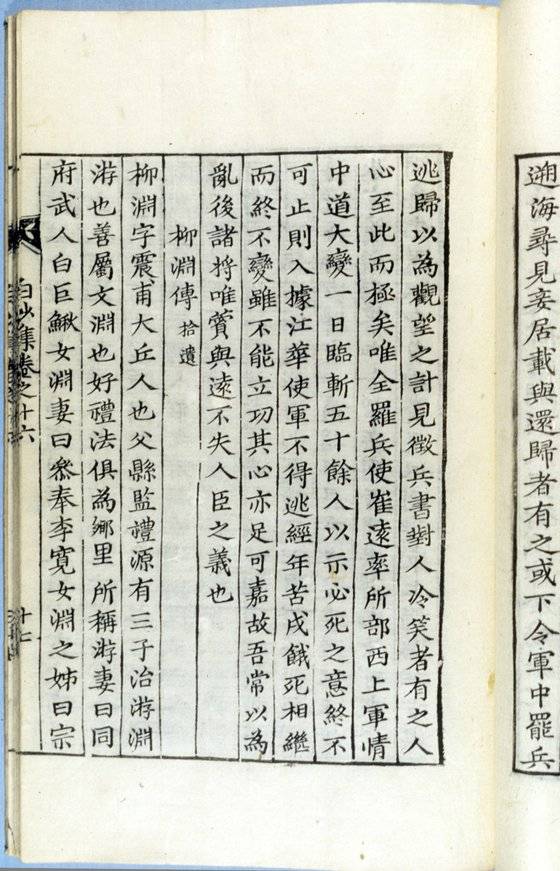 遡海尋見妾居載與還歸者有之或下令軍中罷兵
逃歸以為觀望之計見徵兵書對人冷笑者有之人
心至此而極矣唯全羅兵使崔遠率所部西上軍情
中道大變一日臨斬五十餘人以示必死之意終不
可止則入據江華使軍不得逃經年苦戍餓死相繼
而終不變雖不能立功其心亦足可嘉故吾常以為
亂後諸將唯賞與遠不失人臣之義也
柳淵傳 拾遺
柳淵字震甫大丘人也父縣監禮源有三子治游淵
游也善屬文淵也好禮法俱為鄉里所稱游妻曰同
府武人白巨鰍女淵妻曰叅奉李寬女淵之姊曰宗
白沙集卷之十六
十七